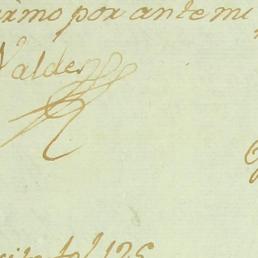 firmo por ante mi
Valdes
fol 125